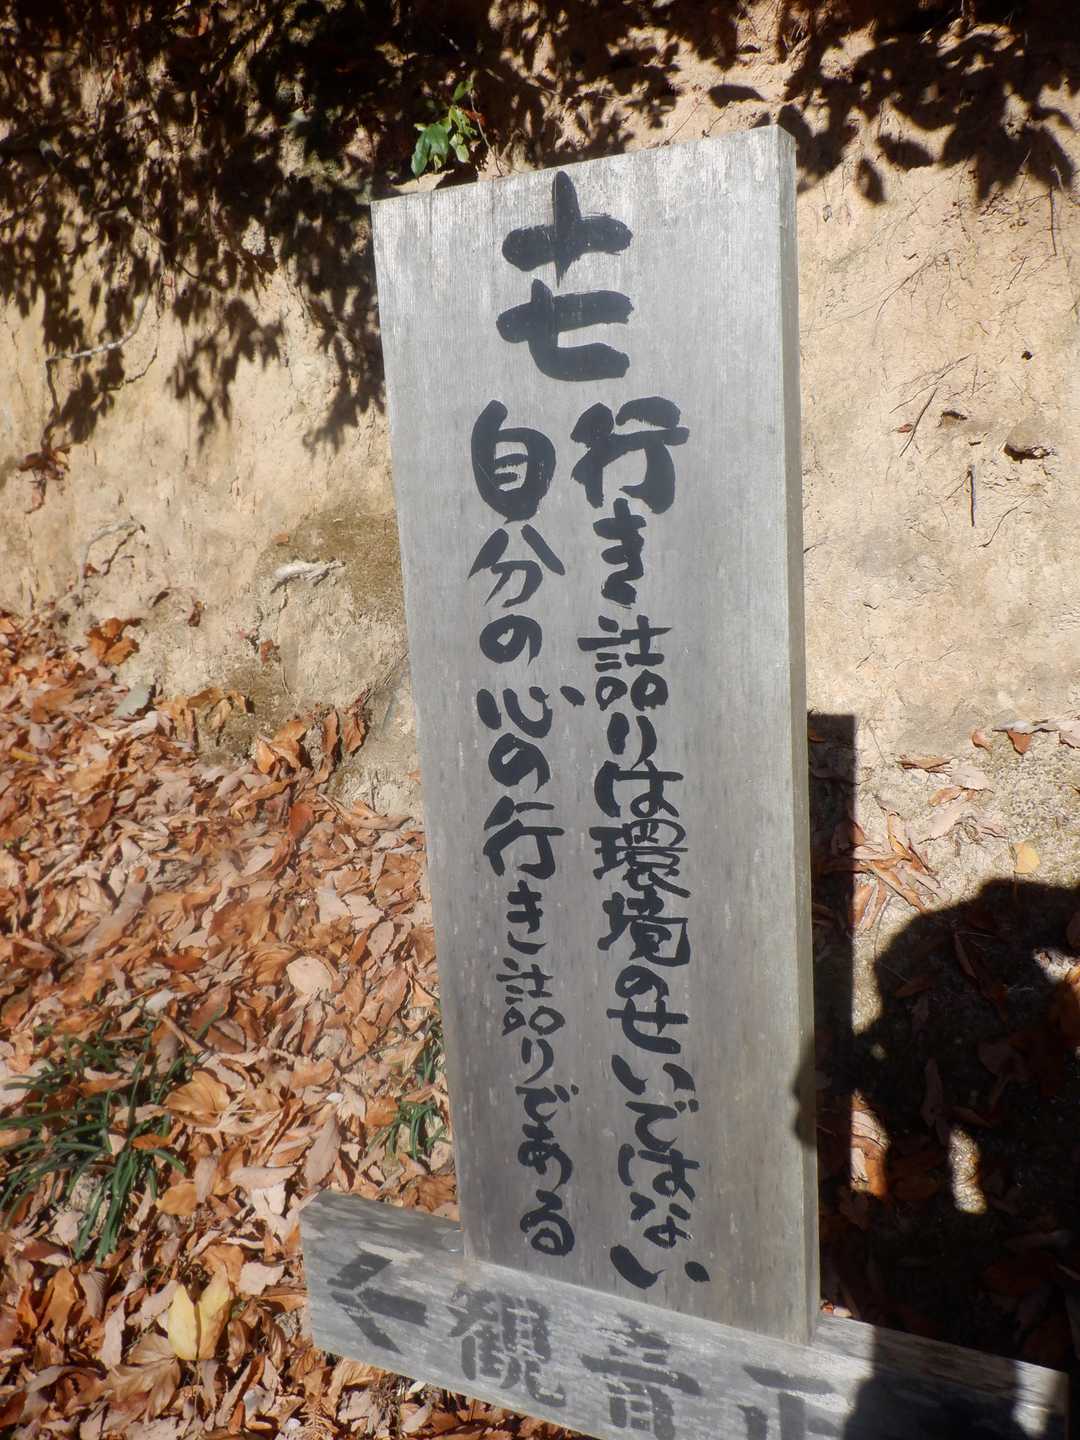 十七
行き詰りは環境のせいではない
自分の心の行き詰りである
観音